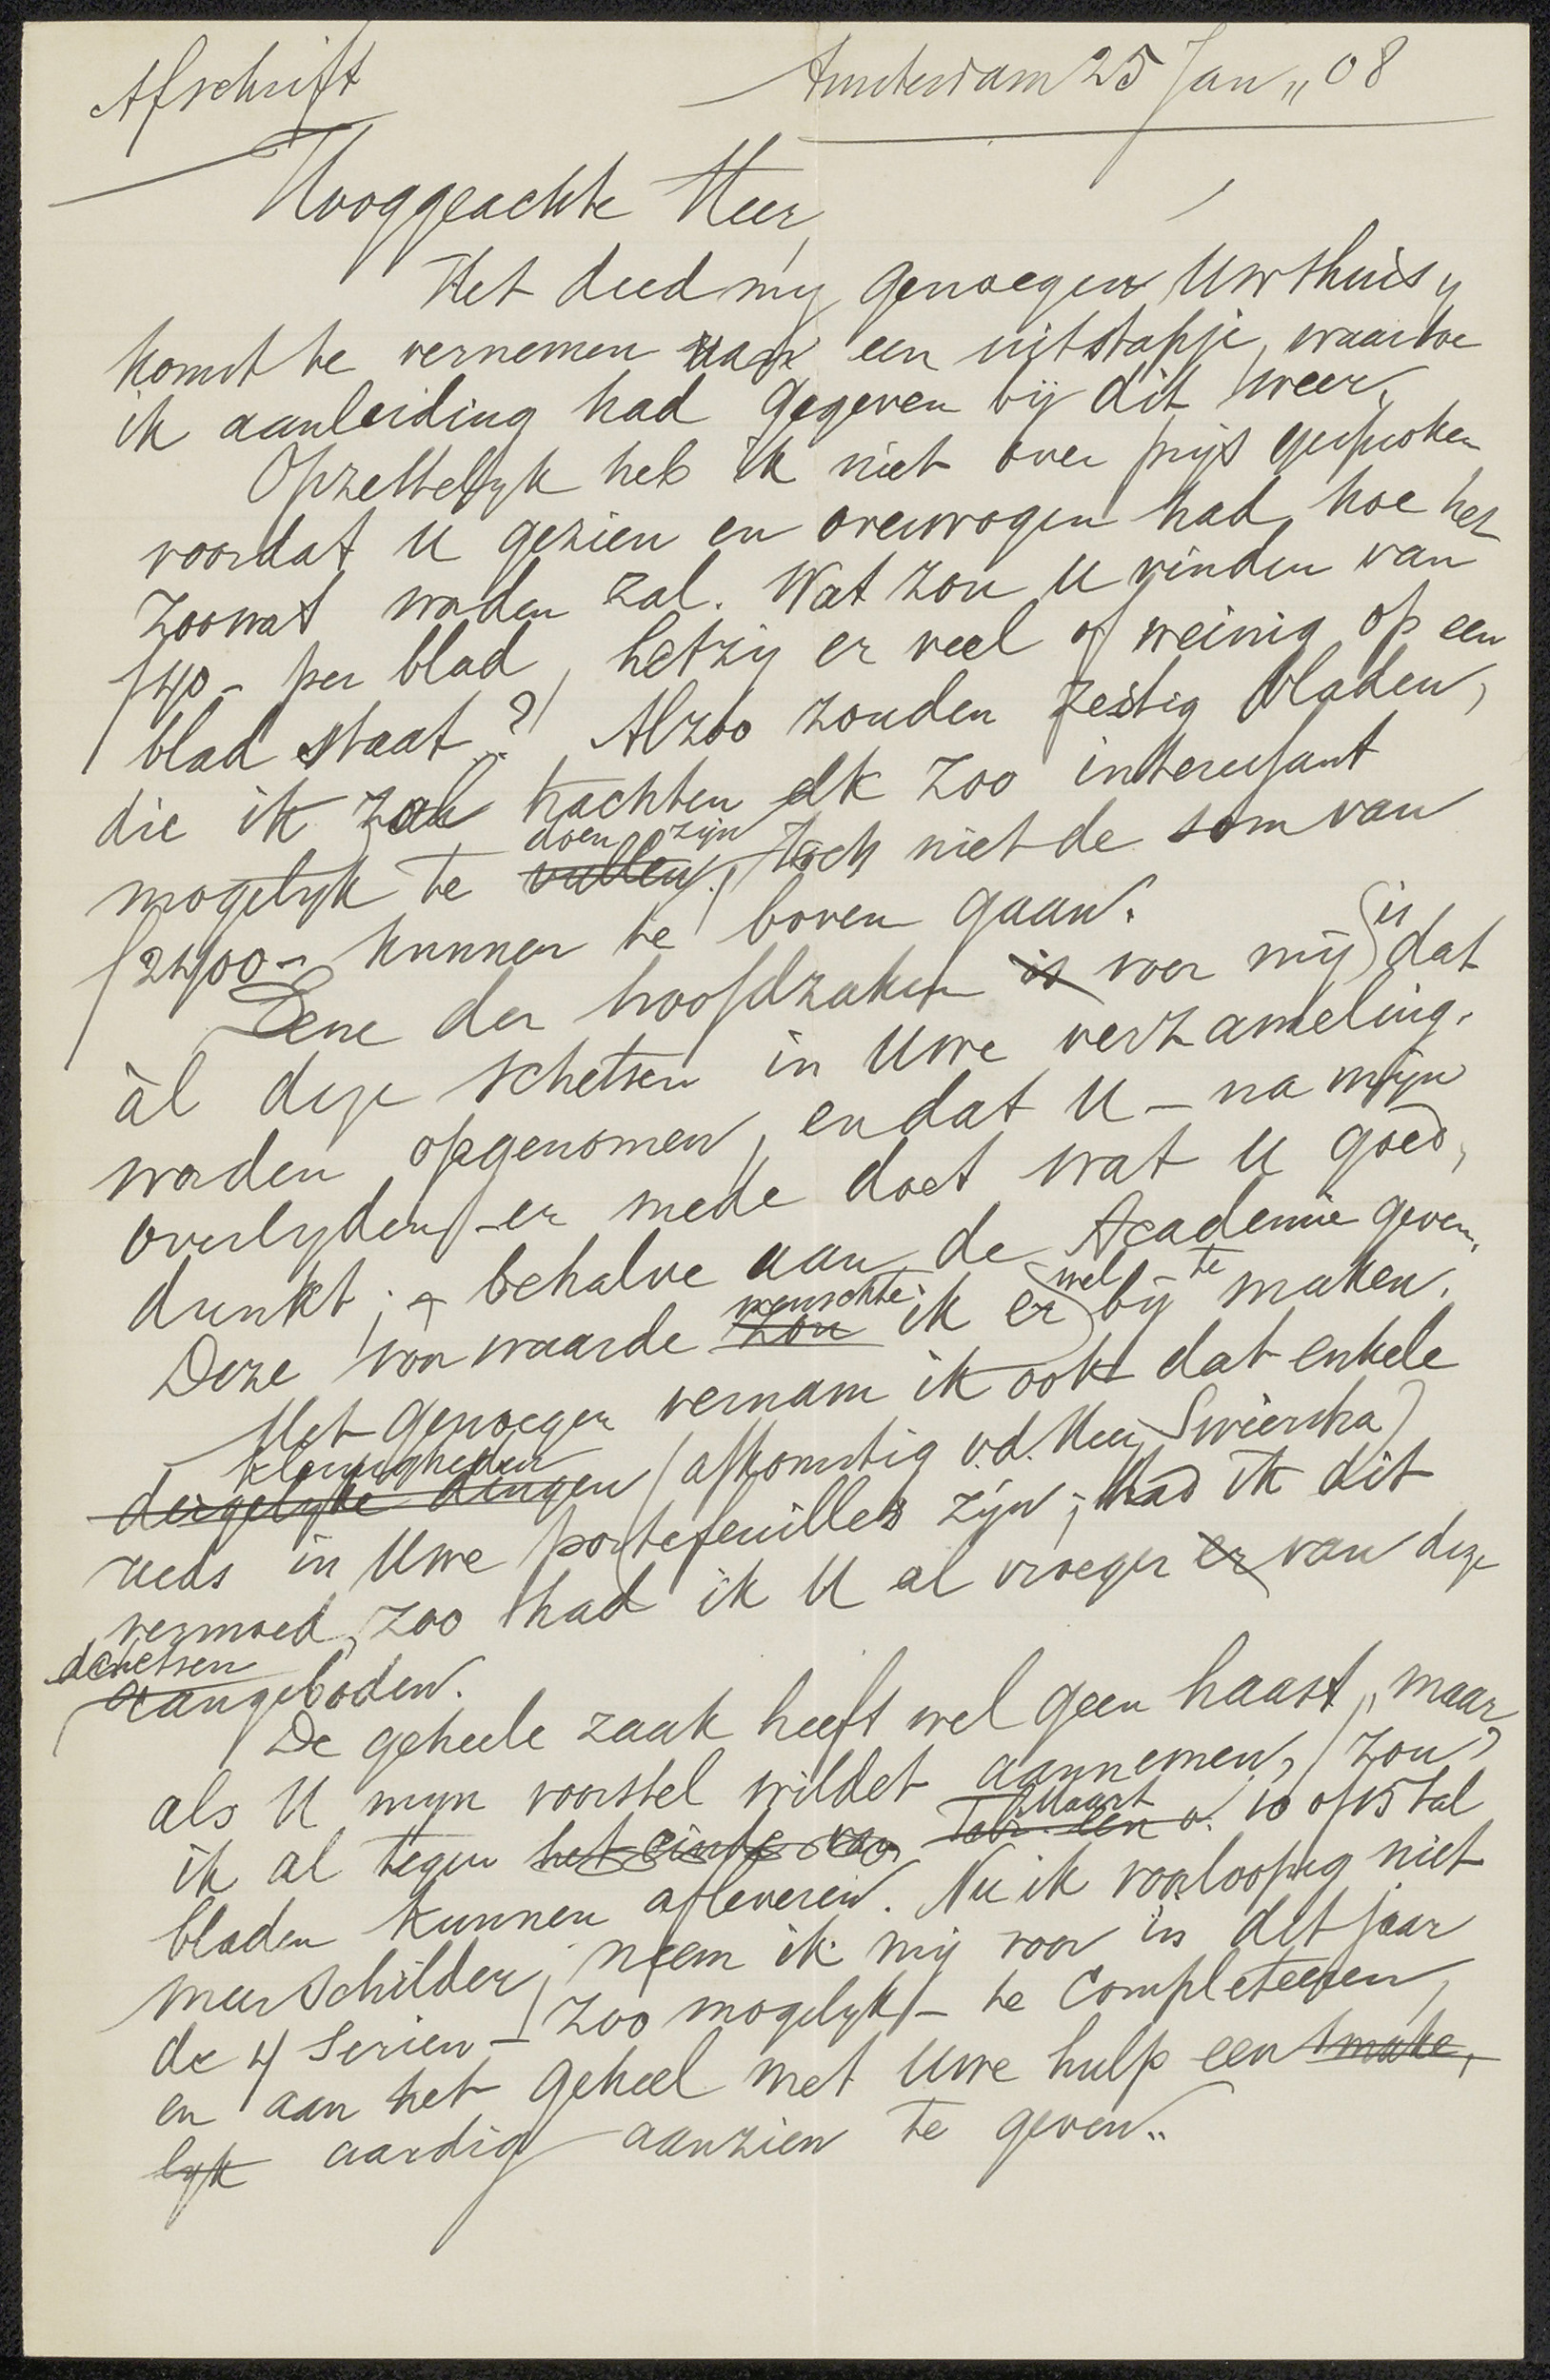 Afschrift
Amsterdam 25 Jan „ 08
Hooggeachte Heer,
Het deed mij genoegen Uw thuis„
komst te vernemen van een uitstapje, waartoe
ik aanleiding had gegeven bij dit weer.
Opzettelijk heb ik niet over prijs gesproken
voordat U gezien en overwogen had, hoe het
zoowat worden zal. Wat zou U vinden van
f 40 - per blad, hetzij er veel of weinig op een
blad staat? Alzoo zouden zestig bladen,
die ik zal trachten elk zoo interessant
doen zijn
mogelijk te vullen, toch niet de som van
f 2400 - kunnen te boven gaan.
Eene der hoofdzaken is voor mij is dat
àl deze schetsen in Uwe verzameling
worden opgenomen, en dat U - na mijn
overlijden - er mede doet wat U goed
dunkt; - behalve aan de Academie geven.
wenschte wel te
Deze voorwaarde zou ik er bij maken.
Met genoegen vernam ik ook dat enkele
kleinigheden
dergelijke dingen (afkomstig v.d. Heer Swierstra)
reeds in Uwe portefeuilles zijn; had ik dit
vermoed, zoo had ik U al vroeger er van deze
schetsen
aangeboden.
De geheele zaak heeft wel geen haast, maar
als U mijn voorstel wildet aannemen, zou
Maart
ik al tegen het einde van Febr. een 10 of 15 tal
bladen kunnen afleveren. Nu ik voorloopig niet
meer schilder, neem ik mij voor in dit jaar
de 4 Seriën - zoo mogelijk - te completeeren,
en aan het geheel met Uwe hulp een smake„
lijk aardig aanzien te geven..